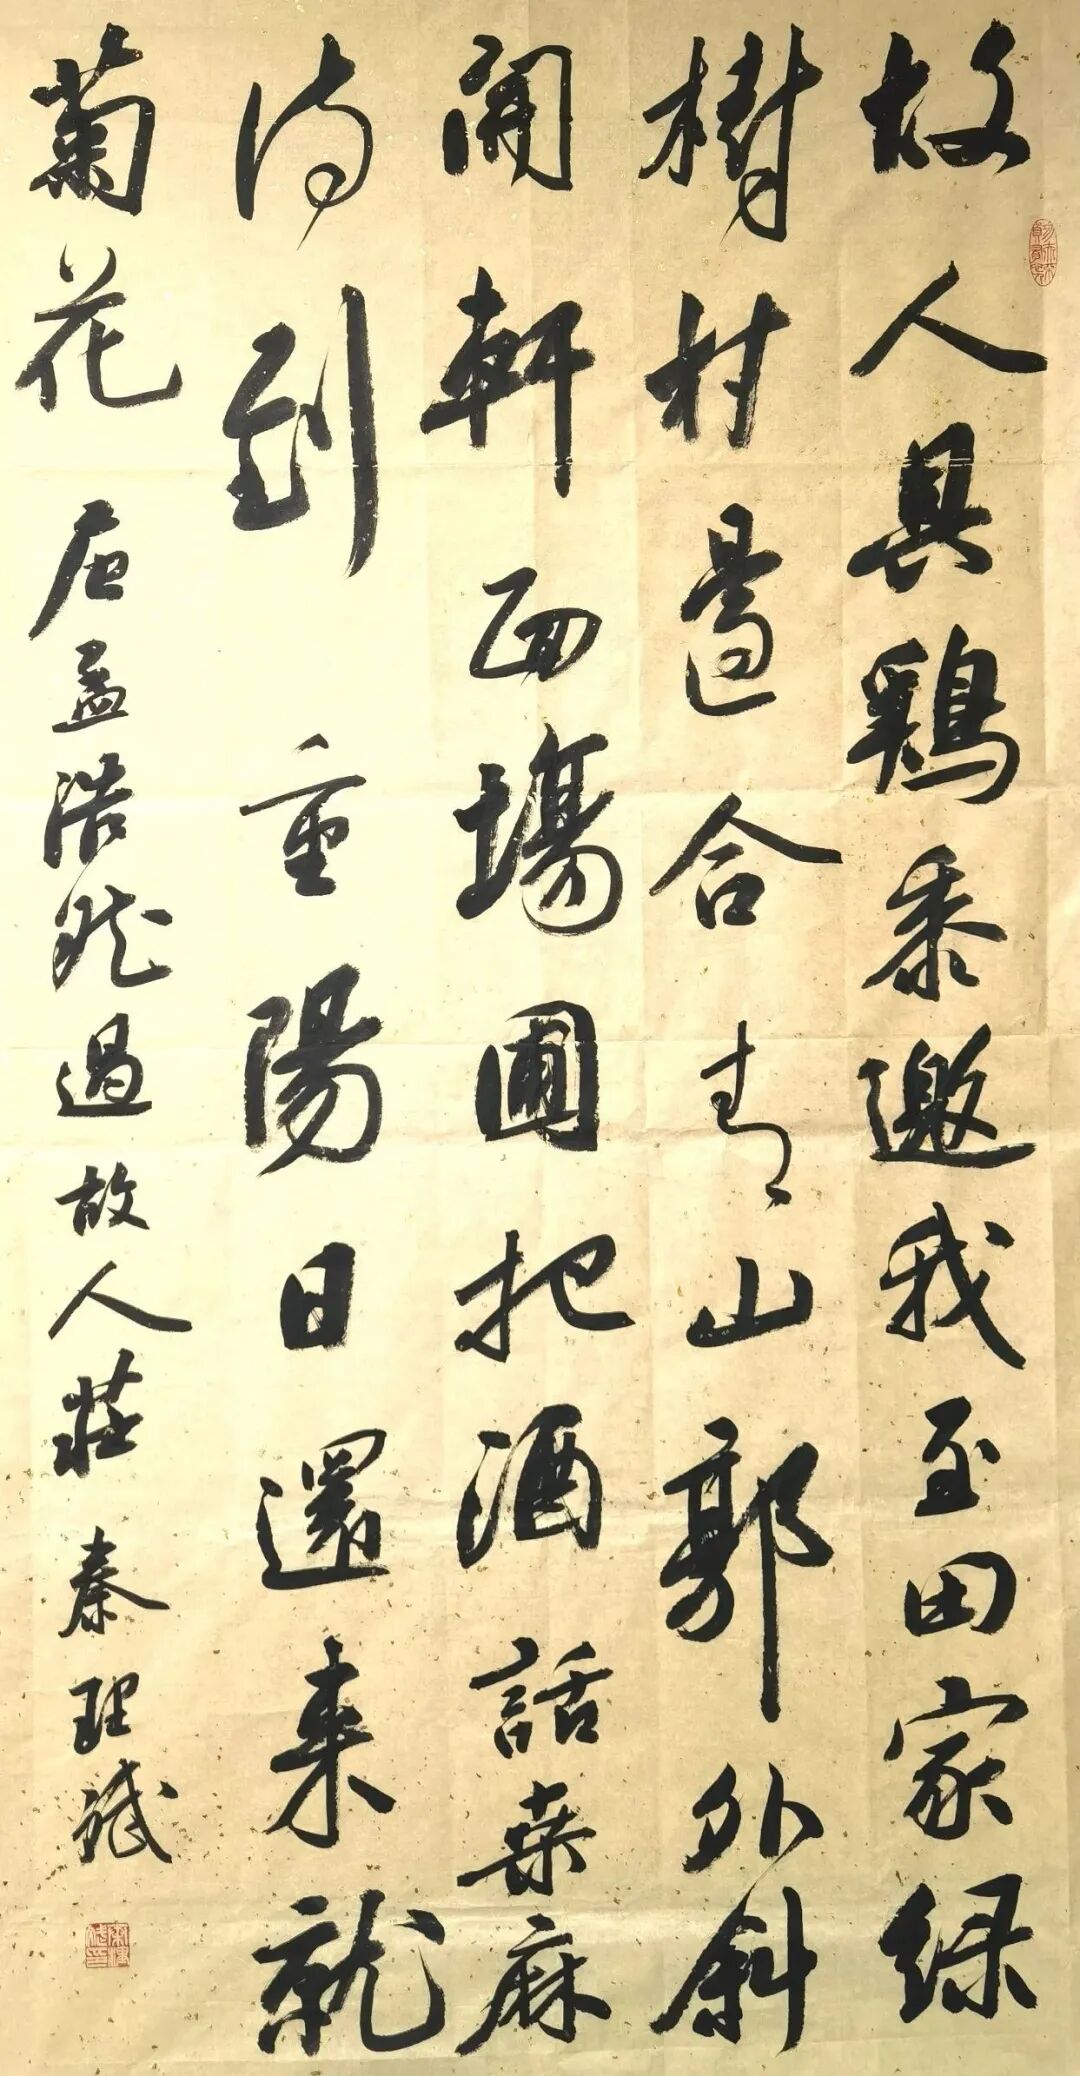 故人具鷄黍邀我至田家綠
樹村邊合青山郭外斜
開軒面場圃把酒話桑麻
待到重陽日還来就
菊花 唐孟浩然過故人莊 秦理斌